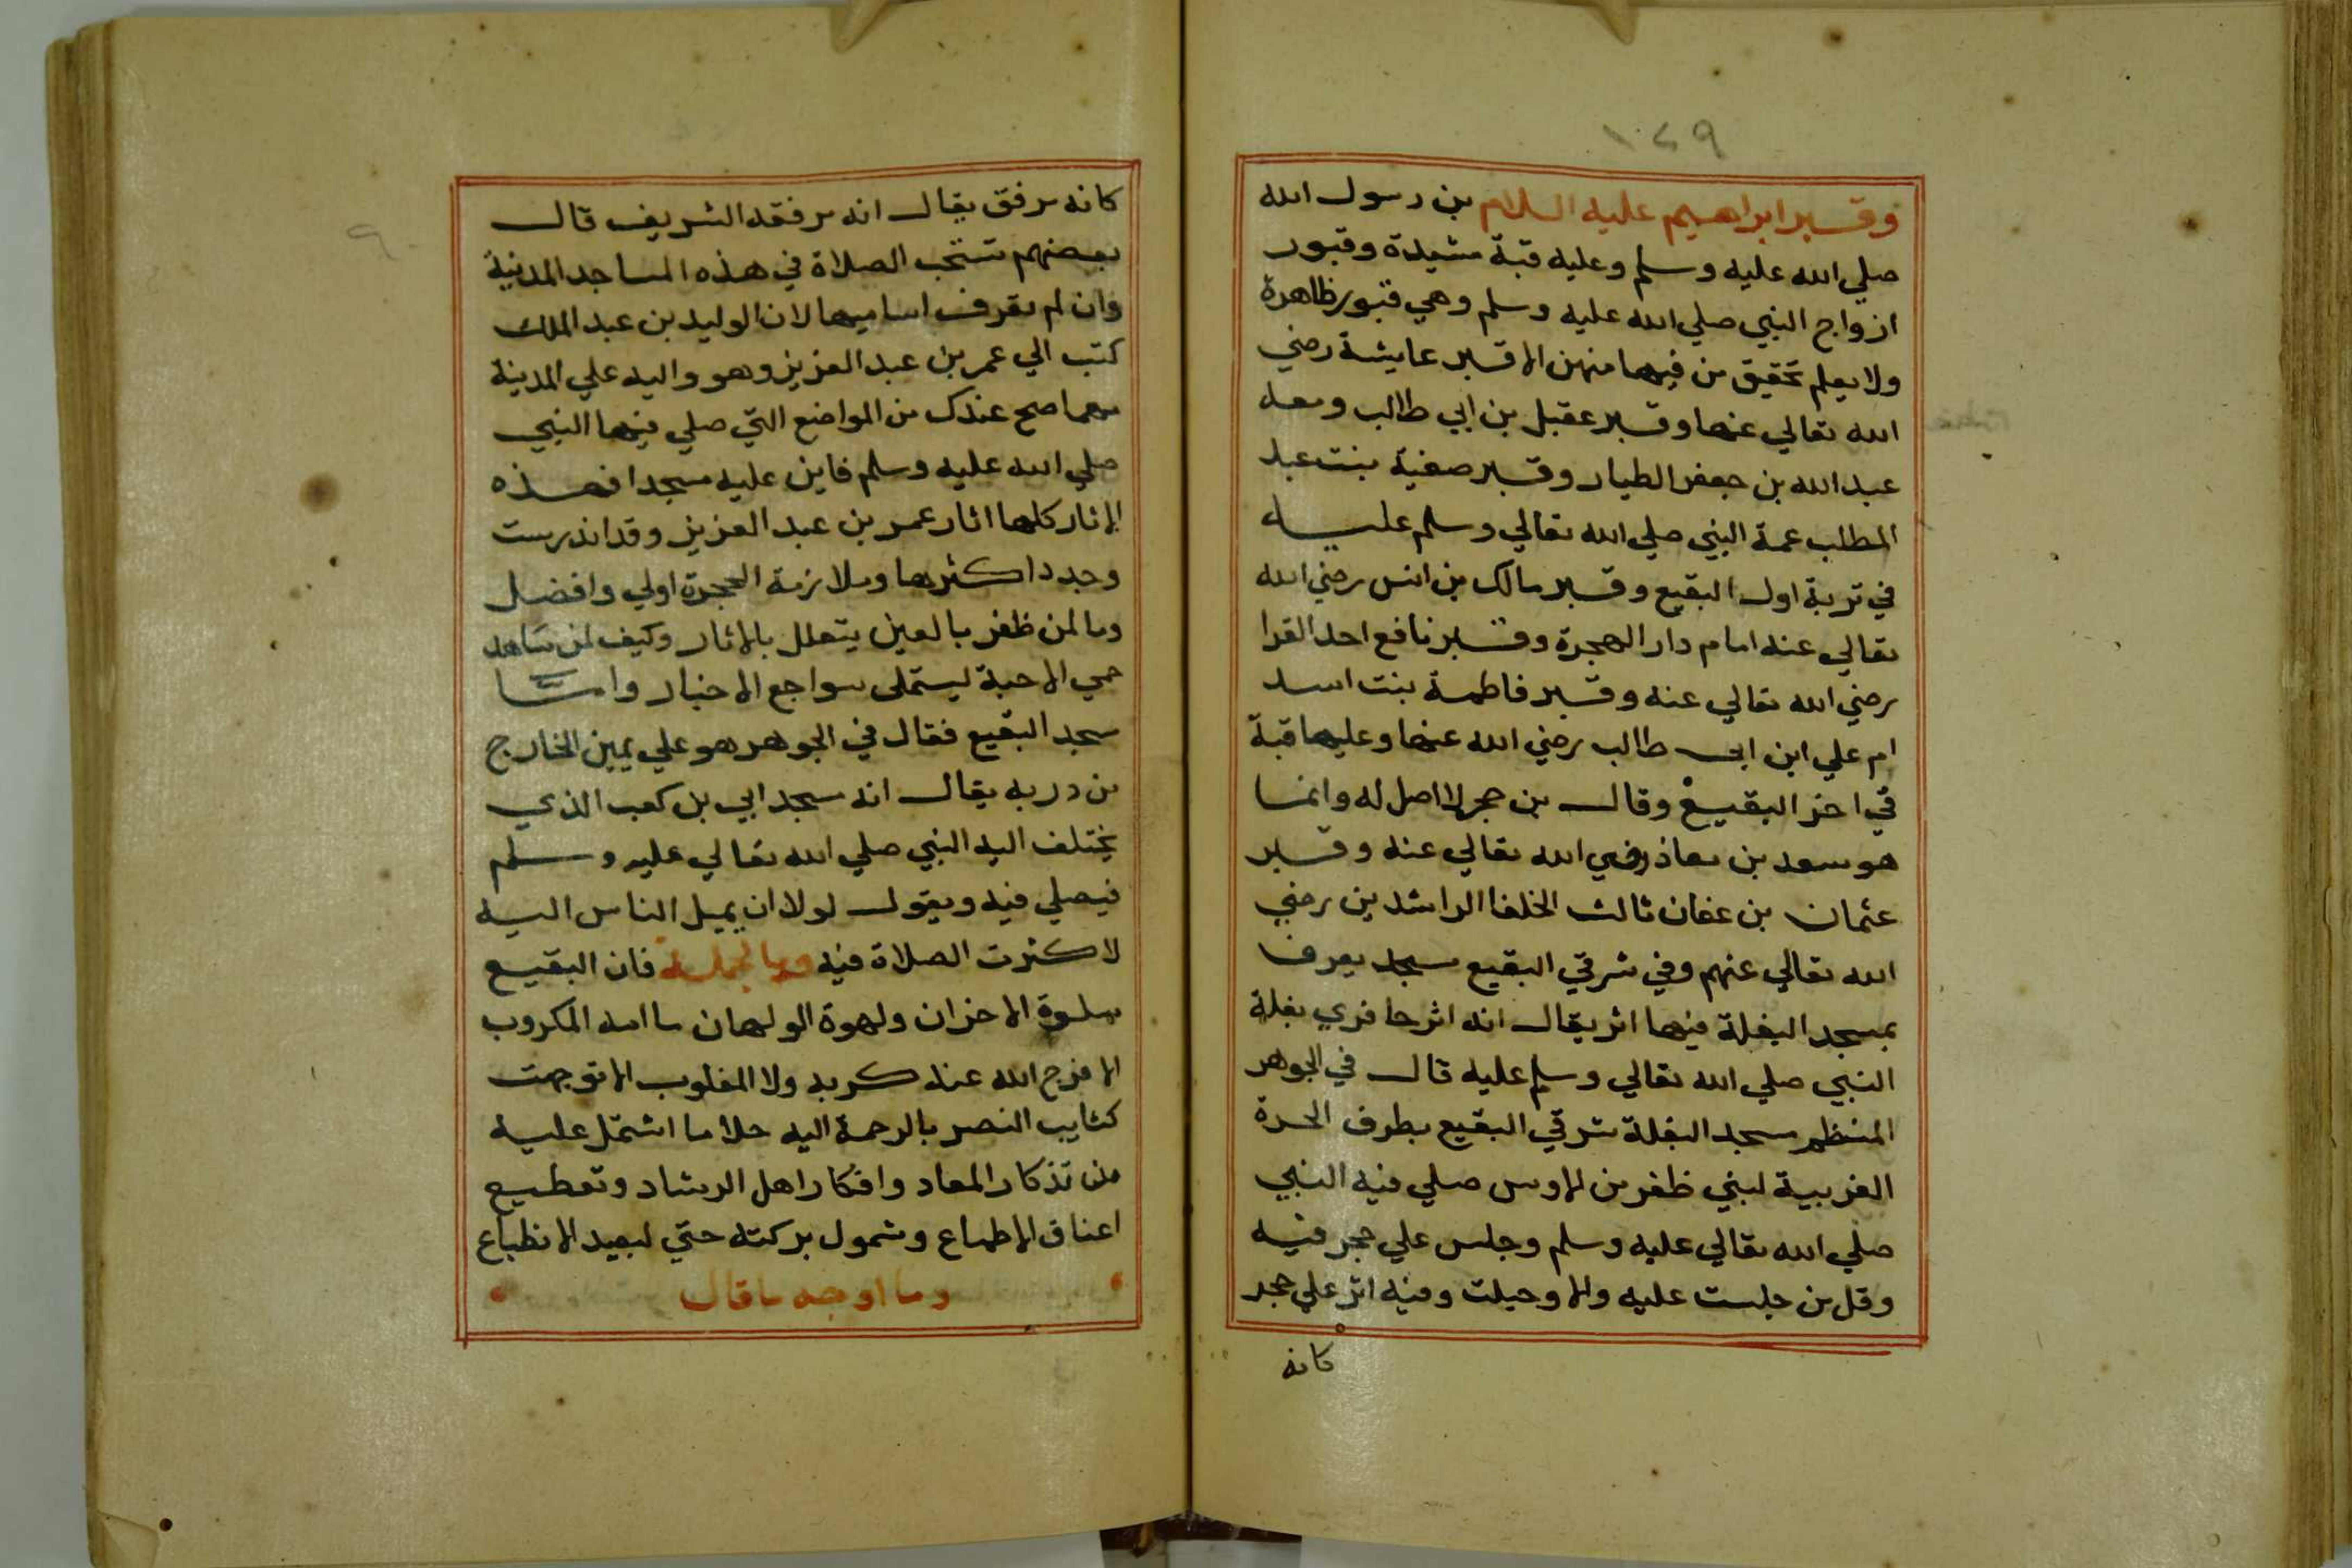 ١٠٤٩
وقبر ابراهيم عليه السلام بن رسول الله
صلي الله عليه وسلم وعليه قبة مشيدة وقبور
ازواج النبي صلي الله عليه وسلم وهي قبور ظاهرة
ولا يعلم تحقيق من فيها منهن الا قبر عايشة رضي
الله تعالي عنها وقبر عقيل بن ابي طالب ومعه
عبد الله بن جعفر الطيار وقبر صفية بنت عبد
المطلب عمة النبي صلي الله تعالي وسلم عليه
في تربة اول البقيع وقبر مالك بن انس رضي الله
تعالي عنه امام دار الهجرة وقبر نافع احد القرا
رضي الله تعالي عنه وقبر فاطمة بنت اسد
ام علي ابن ابي طالب رضي الله عنها وعليها قبة
في اخر البقيع وقال بن حجر لا اصل له وانما
هو سعد بن معاذ رضي الله تعالي عنه وقبر
عثمان بن عفان ثالث الخلفا الراشدين رضي
الله تعالي عنهم وفي شرقي البقيع مسجد يعرف
بمسجد البغلة فيها اثر يقال انه اثر حافري بغلة
النبي صلي الله تعالي وسلم عليه قال في الجوهر
المنظم مسجد البغلة شرقي البقيع بطرف الحرة
الغربية لبني ظفر من الاوس صلي فيه النبي
صلي الله تعالي عليه وسلم وجلس علي حجر فيه
وقل من جلست عليه والا وحبلت وفيه اثر علي حجر
كانه
كانه مرفق يقال انه مرفقه الشريف قال
بعضهم تستحب الصلاة في هذه المساجد المدنية
وان لم تعرف اساميها لان الوليد بن عبد الملك
كتب الي عمر بن عبد العزيز وهو واليه علي المدينة
مهما صح عندك من المواضع التي صلي فيها النبي
صلي الله عليه وسلم فابن عليه مسجدا فهذه
الاثار كلها اثار عمر بن عبد العزيز وقد اندرست
وجدد اكثرها وملازمة الحجرة اولي وافضل
وما لمن ظفر بالعين يتعلل بالاثار وكيف لمن شاهد
حمي الاحبة ليستملي سواجع الاخبار واما
مسجد البقيع فقال في الجوهر هو علي يمين الخارج
من دربه يقال انه مسجد ابي بن كعب الذي
يختلف اليه النبي صلي الله تعالي عليه وسلم
فيصلي فيه ويقول لولا ان يميل الناس اليه
لاكثرت الصلاة فيه وبالجملة فان البقيع
سلوة الاحزان ولهوة الولهان ما امه المكروب
الا فرج الله عنه كربه ولا المغلوب الا توجهت
كتايب النصر بالرحمة اليه حلا ما اشتمل عليه
من تذكار المعاد وافكار اهل الرشاد وتقطيع
اعناق الاطماع وشمول بركته حتي لبعيد الانطباع
وما اوجه ما قال